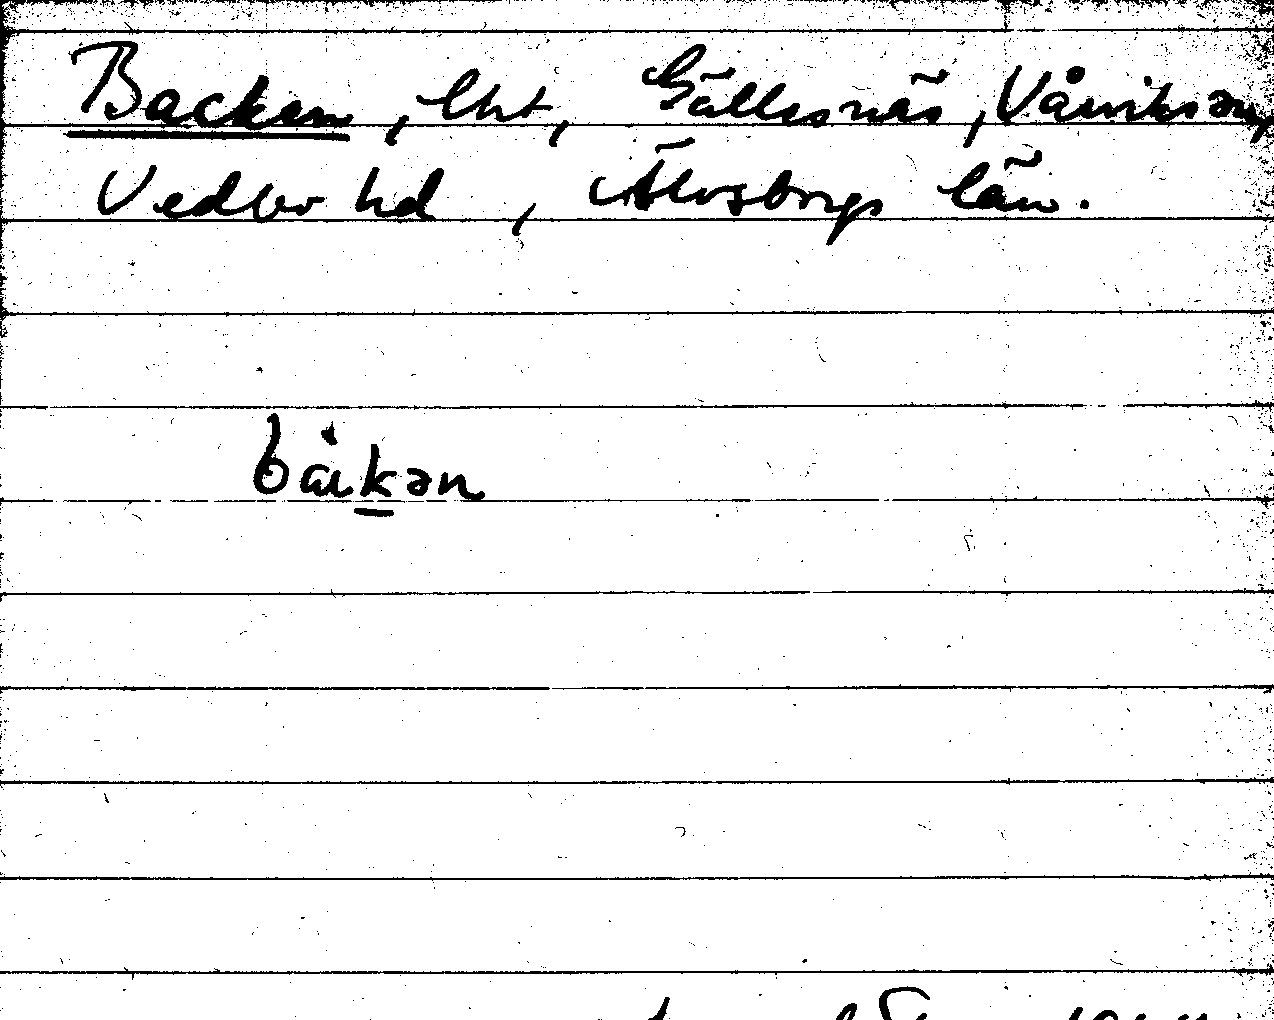 Backen, lht, Gällesnäs, Vårviks sn,
Vedbo hd, Älvsborgs län.
bakən